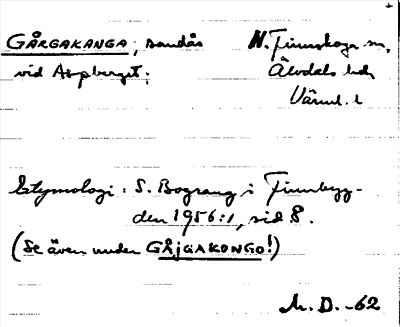 GÅRGAKANGA; sandås N. Finnskoga sn,
vid Aspberget; Älvdals hd,
Värml. l
Etymologi: S. Bograng i Finnbygden 1956:1, sid 8.
(Se även under GÅJGAKONGO!)
M. D. -62